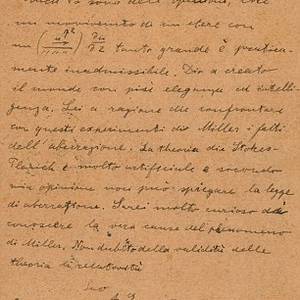 sono della opinione, che
un movimento di un etere con
tanto grande è pratica-
mente inadmissibile. Dio a creato
il mondo con più eleganza ed intelli-
genza. Lei a ragione che confrontare
con questi experimenti di Miller i fatti
dell'aberrazione. La theoria di Stokes-
Planck è molto artificiale e secondo
mia opinione non può spiegare la legge
di aberrazione. Sarei molto curioso di
conoscere la vera causa del phenomeno
di Miller. Non dubito della validità delle
theoria di relatività
Suo